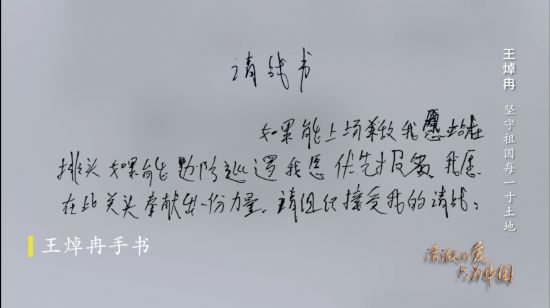 请战书
如果能上场杀敌我愿站在
排头如果能 边防巡逻我愿优先报名 我愿
在此关头奉献出一份力量。请组织接受我的请战:
王焯冉手书
王焯冉 坚守祖国每一寸土地
清澈的爱
只为中国